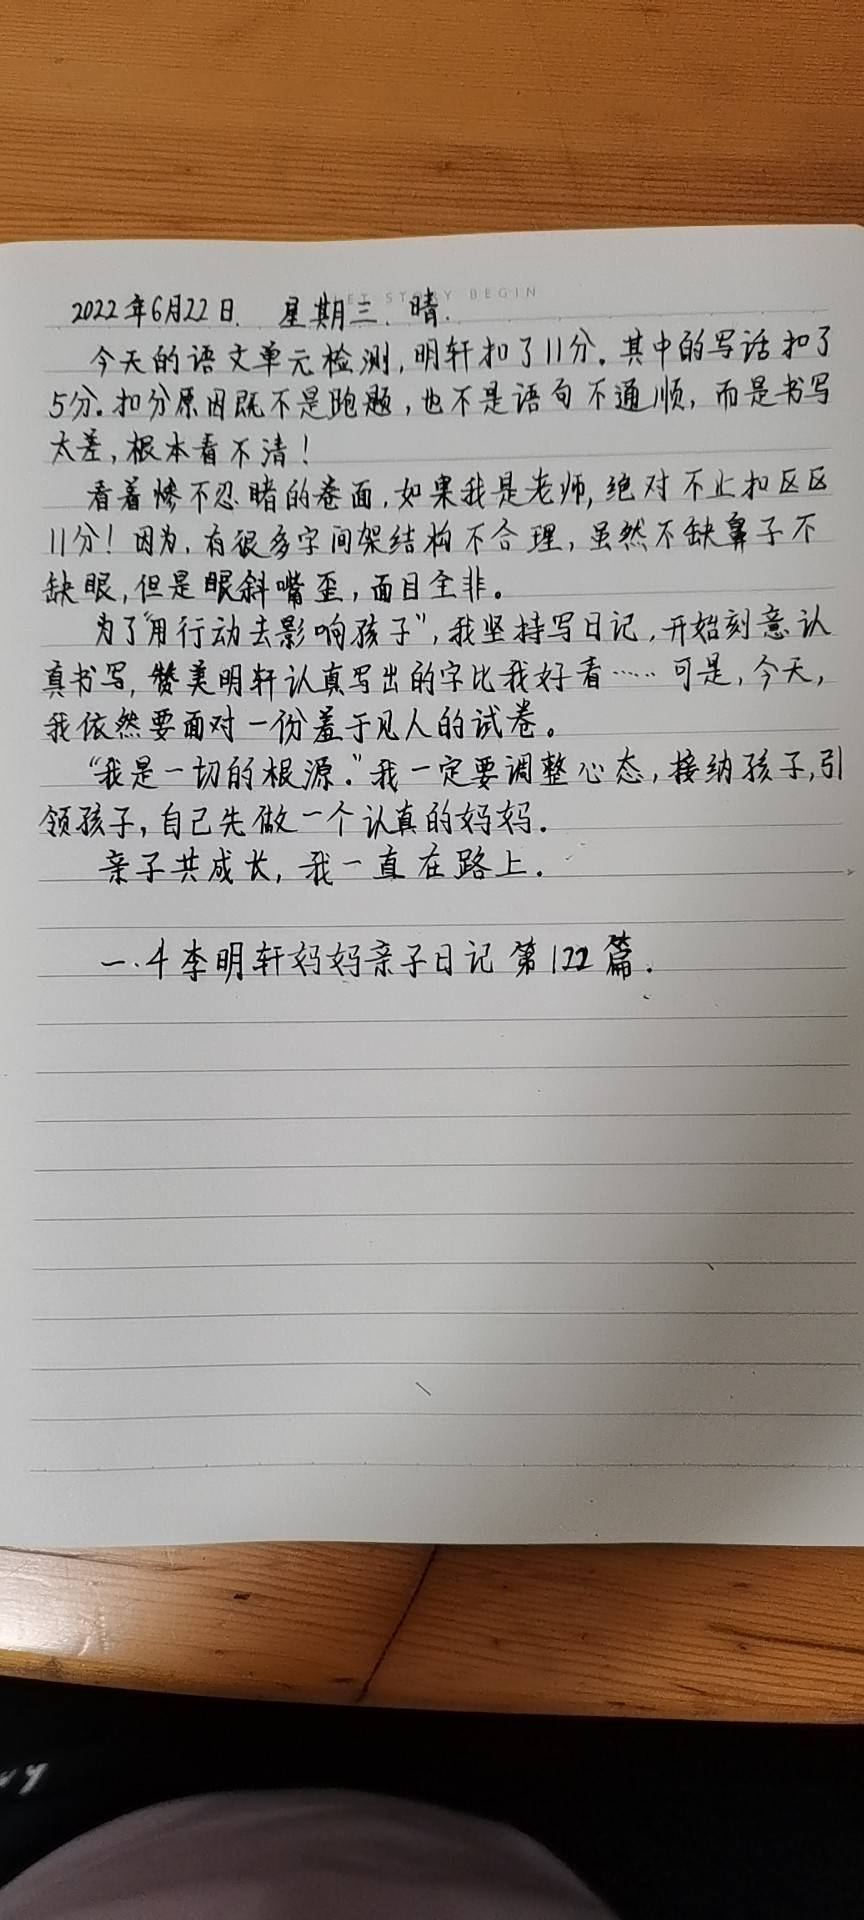 LET STORY BEGIN
2022年6月22日. 星期三. 晴.
今天的语文单元检测,明轩扣了11分。其中的写话扣了
5分。扣分原因既不是跑题,也不是语句不通顺,而是书写
太差,根本看不清!
看着惨不忍睹的卷面,如果我是老师,绝对不止扣区区
11分!因为,有很多字间架结构不合理,虽然不缺鼻子不
缺眼,但是眼斜嘴歪,面目全非。
为了“用行动去影响孩子”,我坚持写日记,开始刻意认
真书写,赞美明轩认真写出的字比我好看……可是,今天,
我依然要面对一份羞于见人的试卷。
“我是一切的根源。”我一定要调整心态,接纳孩子,引
领孩子,自己先做一个认真的妈妈.
亲子共成长,我一直在路上.
一.4李明轩妈妈亲子日记 第122篇.